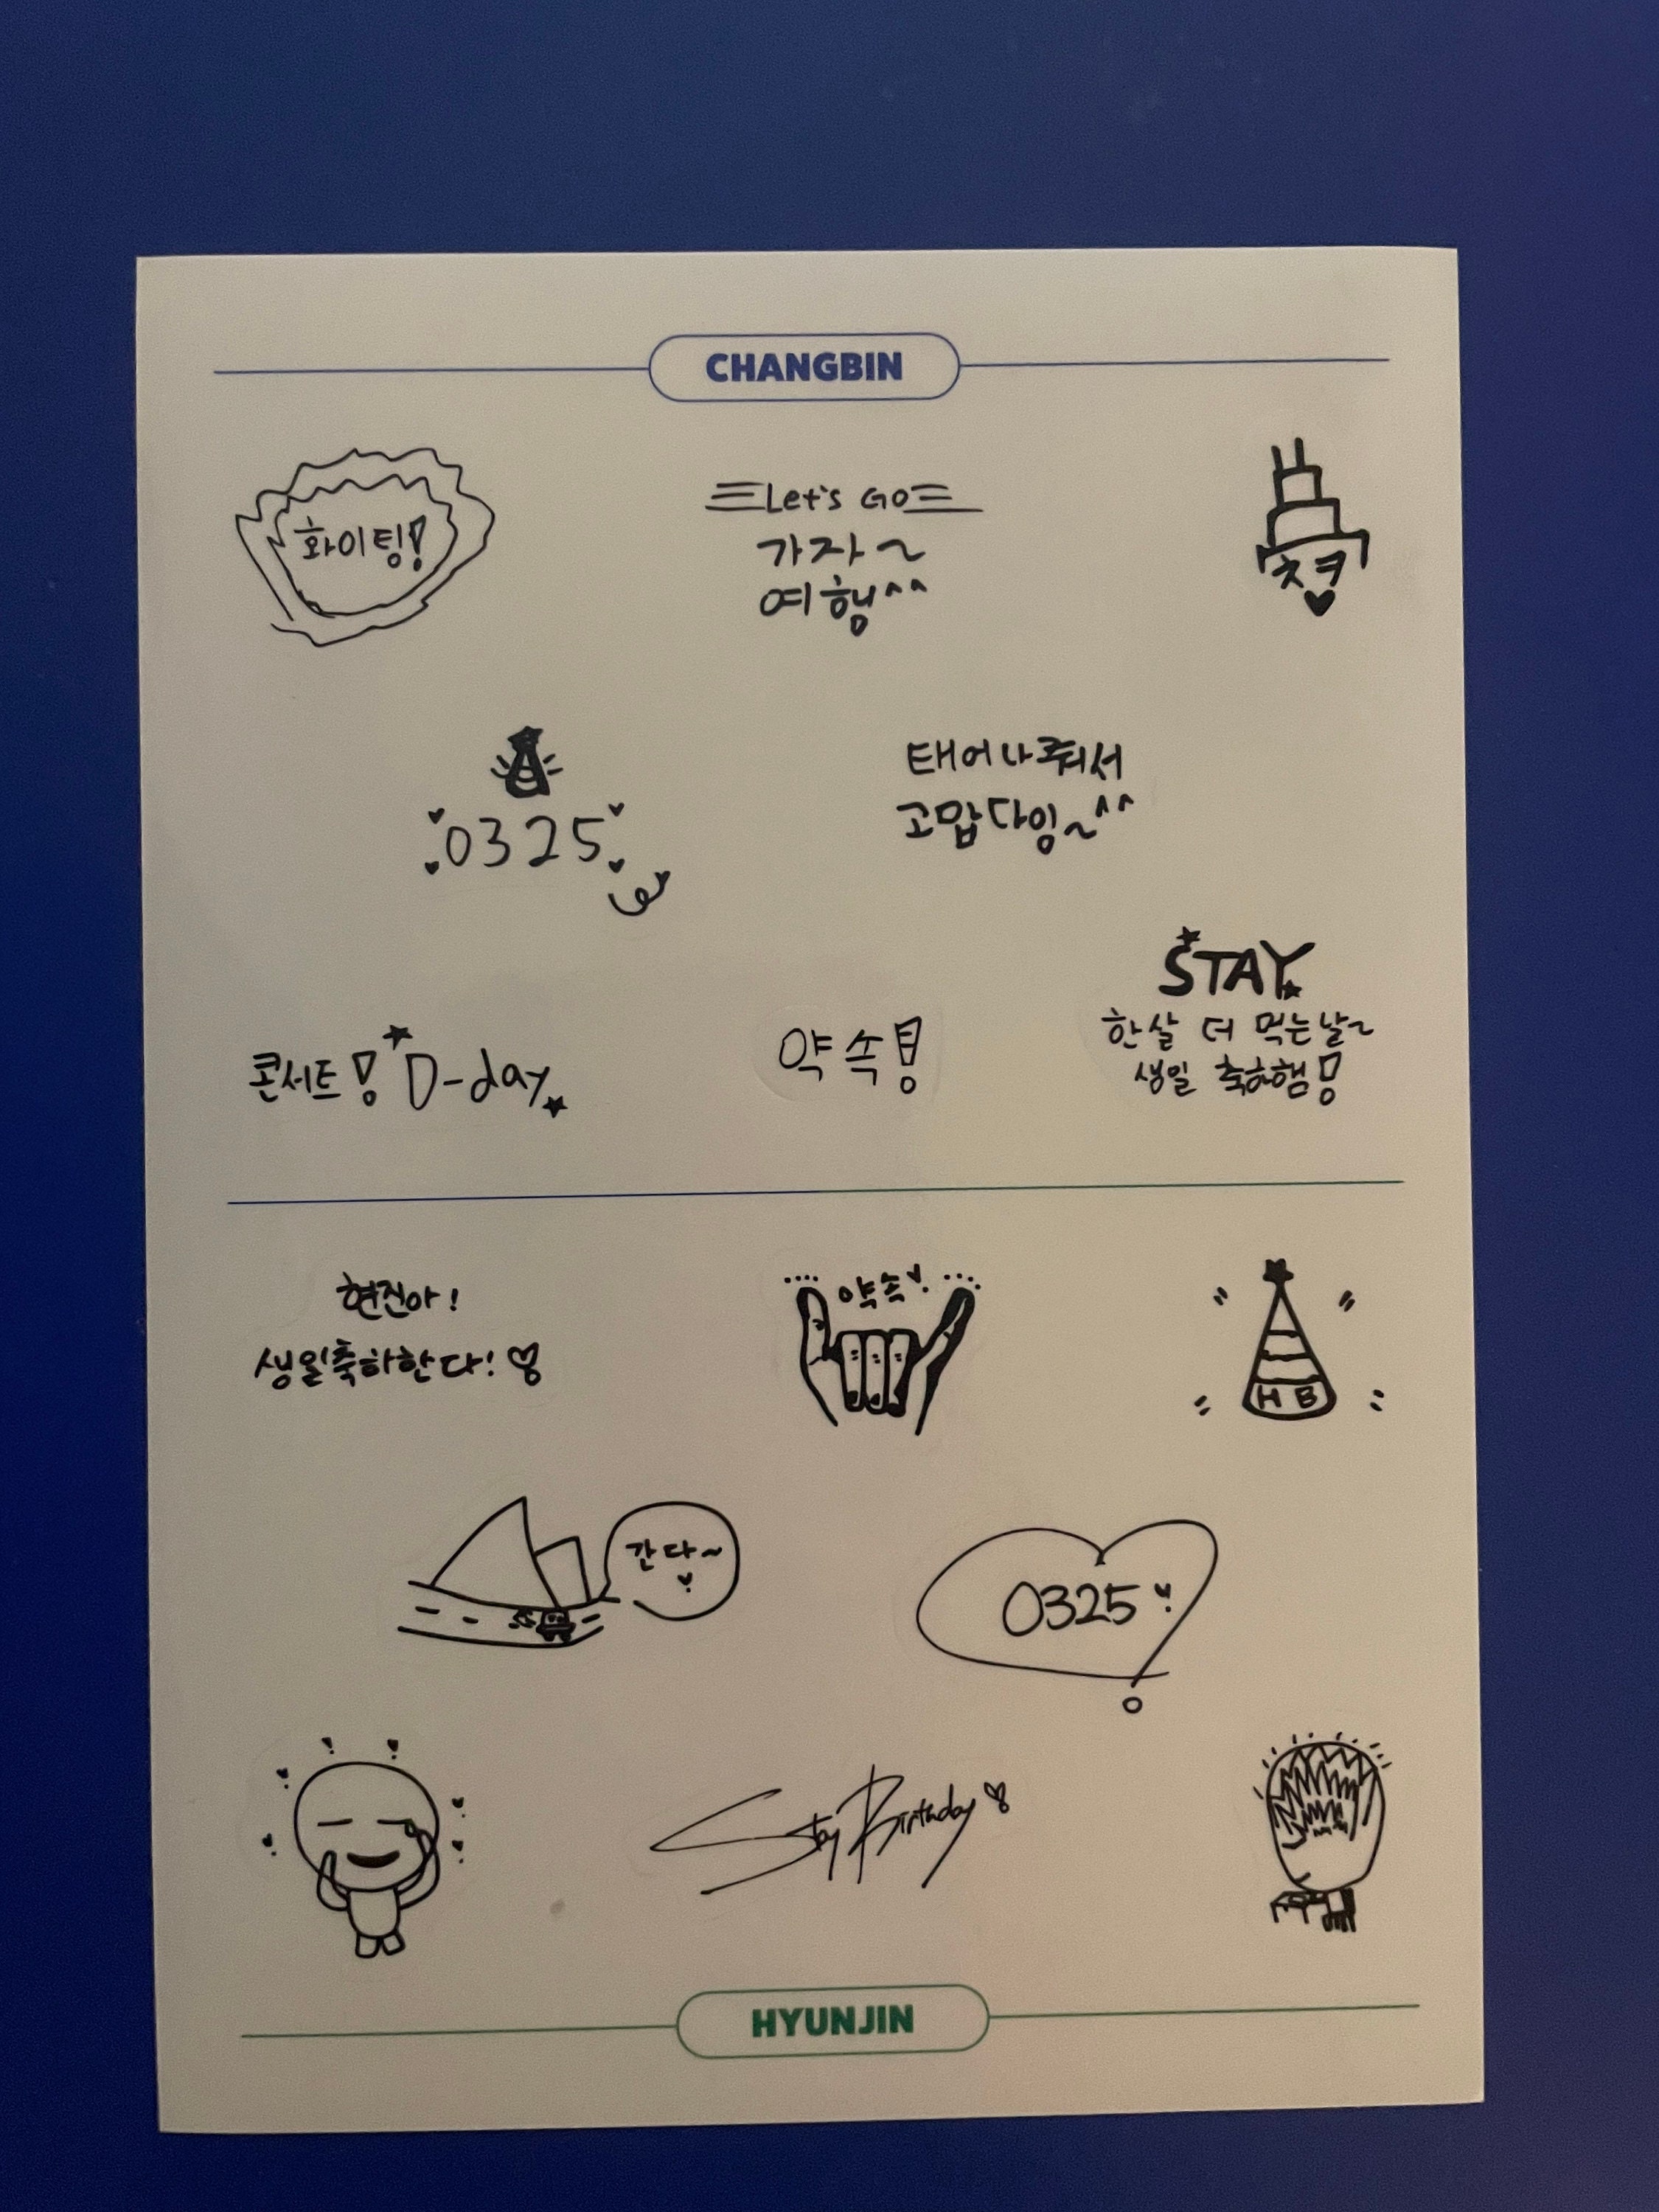 CHANGBIN
화이팅!
Let's GO
가자~
여행^^
추카
0325
태어나줘서
고맙다잉~^^
콘서트! D-day
약속!
STAY
한살 더 먹는날~
생일 축하행!
현진아!
생일축하한다!
약속
H B
간다~
0325
Stay Birthday
HYUNJIN